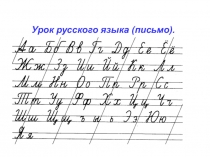 Урок русского языка (письмо).
Аа Бб Вв Гг Дд Ее Ёё
Жж Зз Ии Йй Кк Лл
Мм Нн Оо Пп Рр Сс
Тт Уу Фф Хх Цц Чч
Шш Щщ ъ ы ь Ээ Юю
Яя